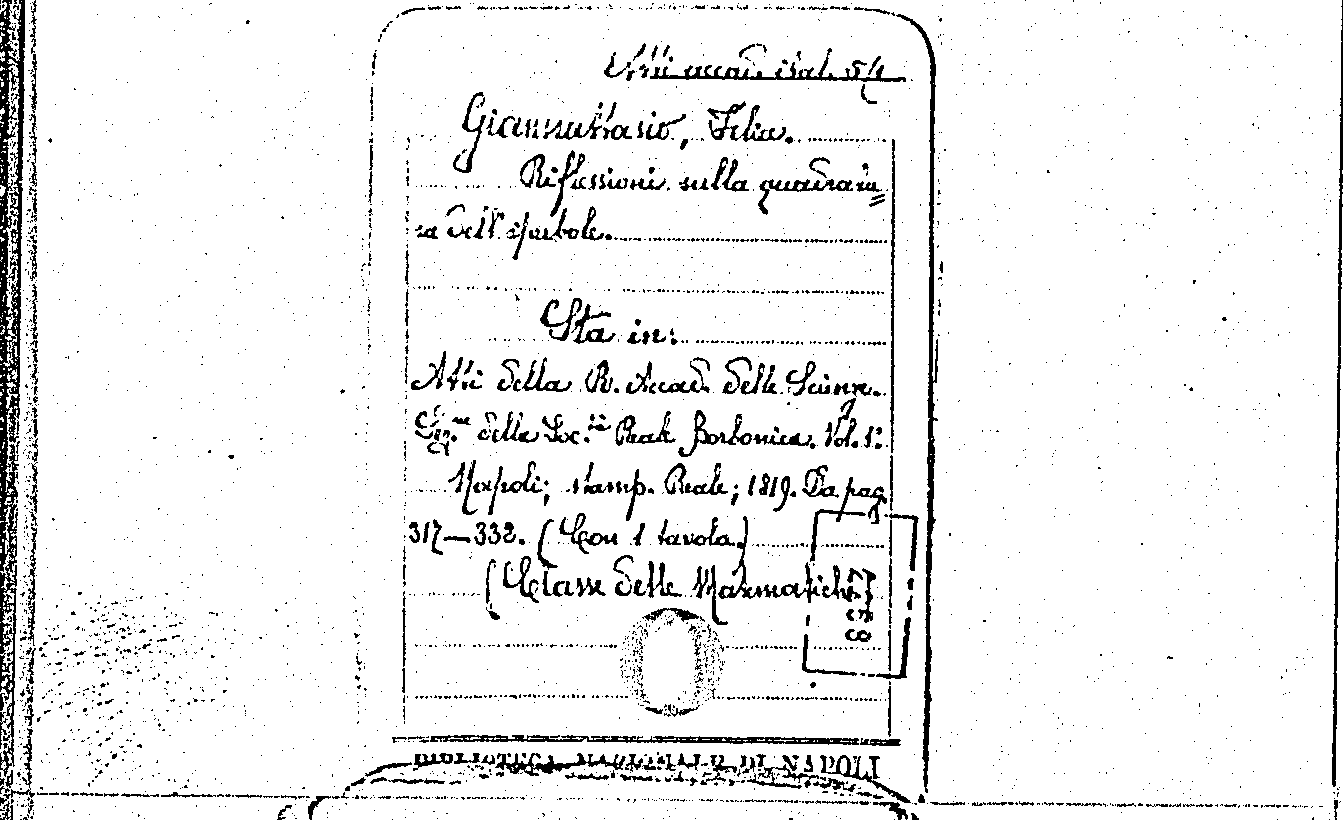 Atti accad. ital. 5/1
Giannattasio, Felice.
Riflessioni sulla quadratu=
ra dell'iperbole.
Sta in:
Atti della R. Accad. delle Scienze.
Sez.ne della Soc.tà Reale Borbonica. Vol. 1º
Napoli; stamp. Reale; 1819. Da pag.
317—332. (Con 1 tavola.)
(Classe delle Matematiche)
BIBLIOTECA NAZIONALE DI NAPOLI